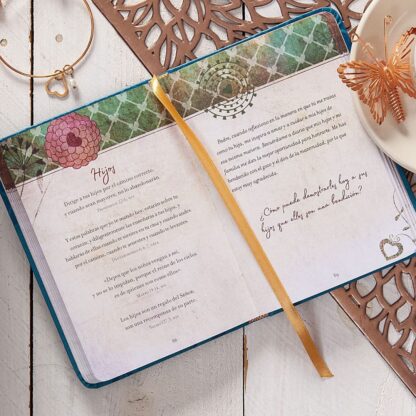 Hijos
Dirige a tus hijos por el camino correcto,
y cuando sean mayores, no lo abandonarán.
Proverbios 22:6, NTV
Y estas palabras que yo te mando hoy, estarán sobre tu
corazón; y diligentemente las enseñarás a tus hijos, y
hablarás de ellas cuando te sientes en tu casa y cuando andes
por el camino, cuando te acuestes y cuando te levantes.
Deuteronomio 6:6-7,
«Dejen que los niños vengan a mí,
y no se lo impidan, porque el reino de los cielos
es de quienes son como ellos».
Mateo 19:14, NVI
Los hijos son un regalo del Señor;
son una recompensa de su parte.
Salmo 127:3, NTV
Padre, cuando reflexiono en la manera en que tú me amas
como tu hija, me inspiro a amar y a cuidar a mis hijos de
esa misma manera. Recuérdame a diario que mis hijos y mi
familia me dan la mejor oportunidad para honrarte. Me has
bendecido con el gozo y el don de la maternidad, por lo que
estoy muy agradecida.
¿Cómo puede demostrarles hoy a sus
hijos que ellos son una bendición?